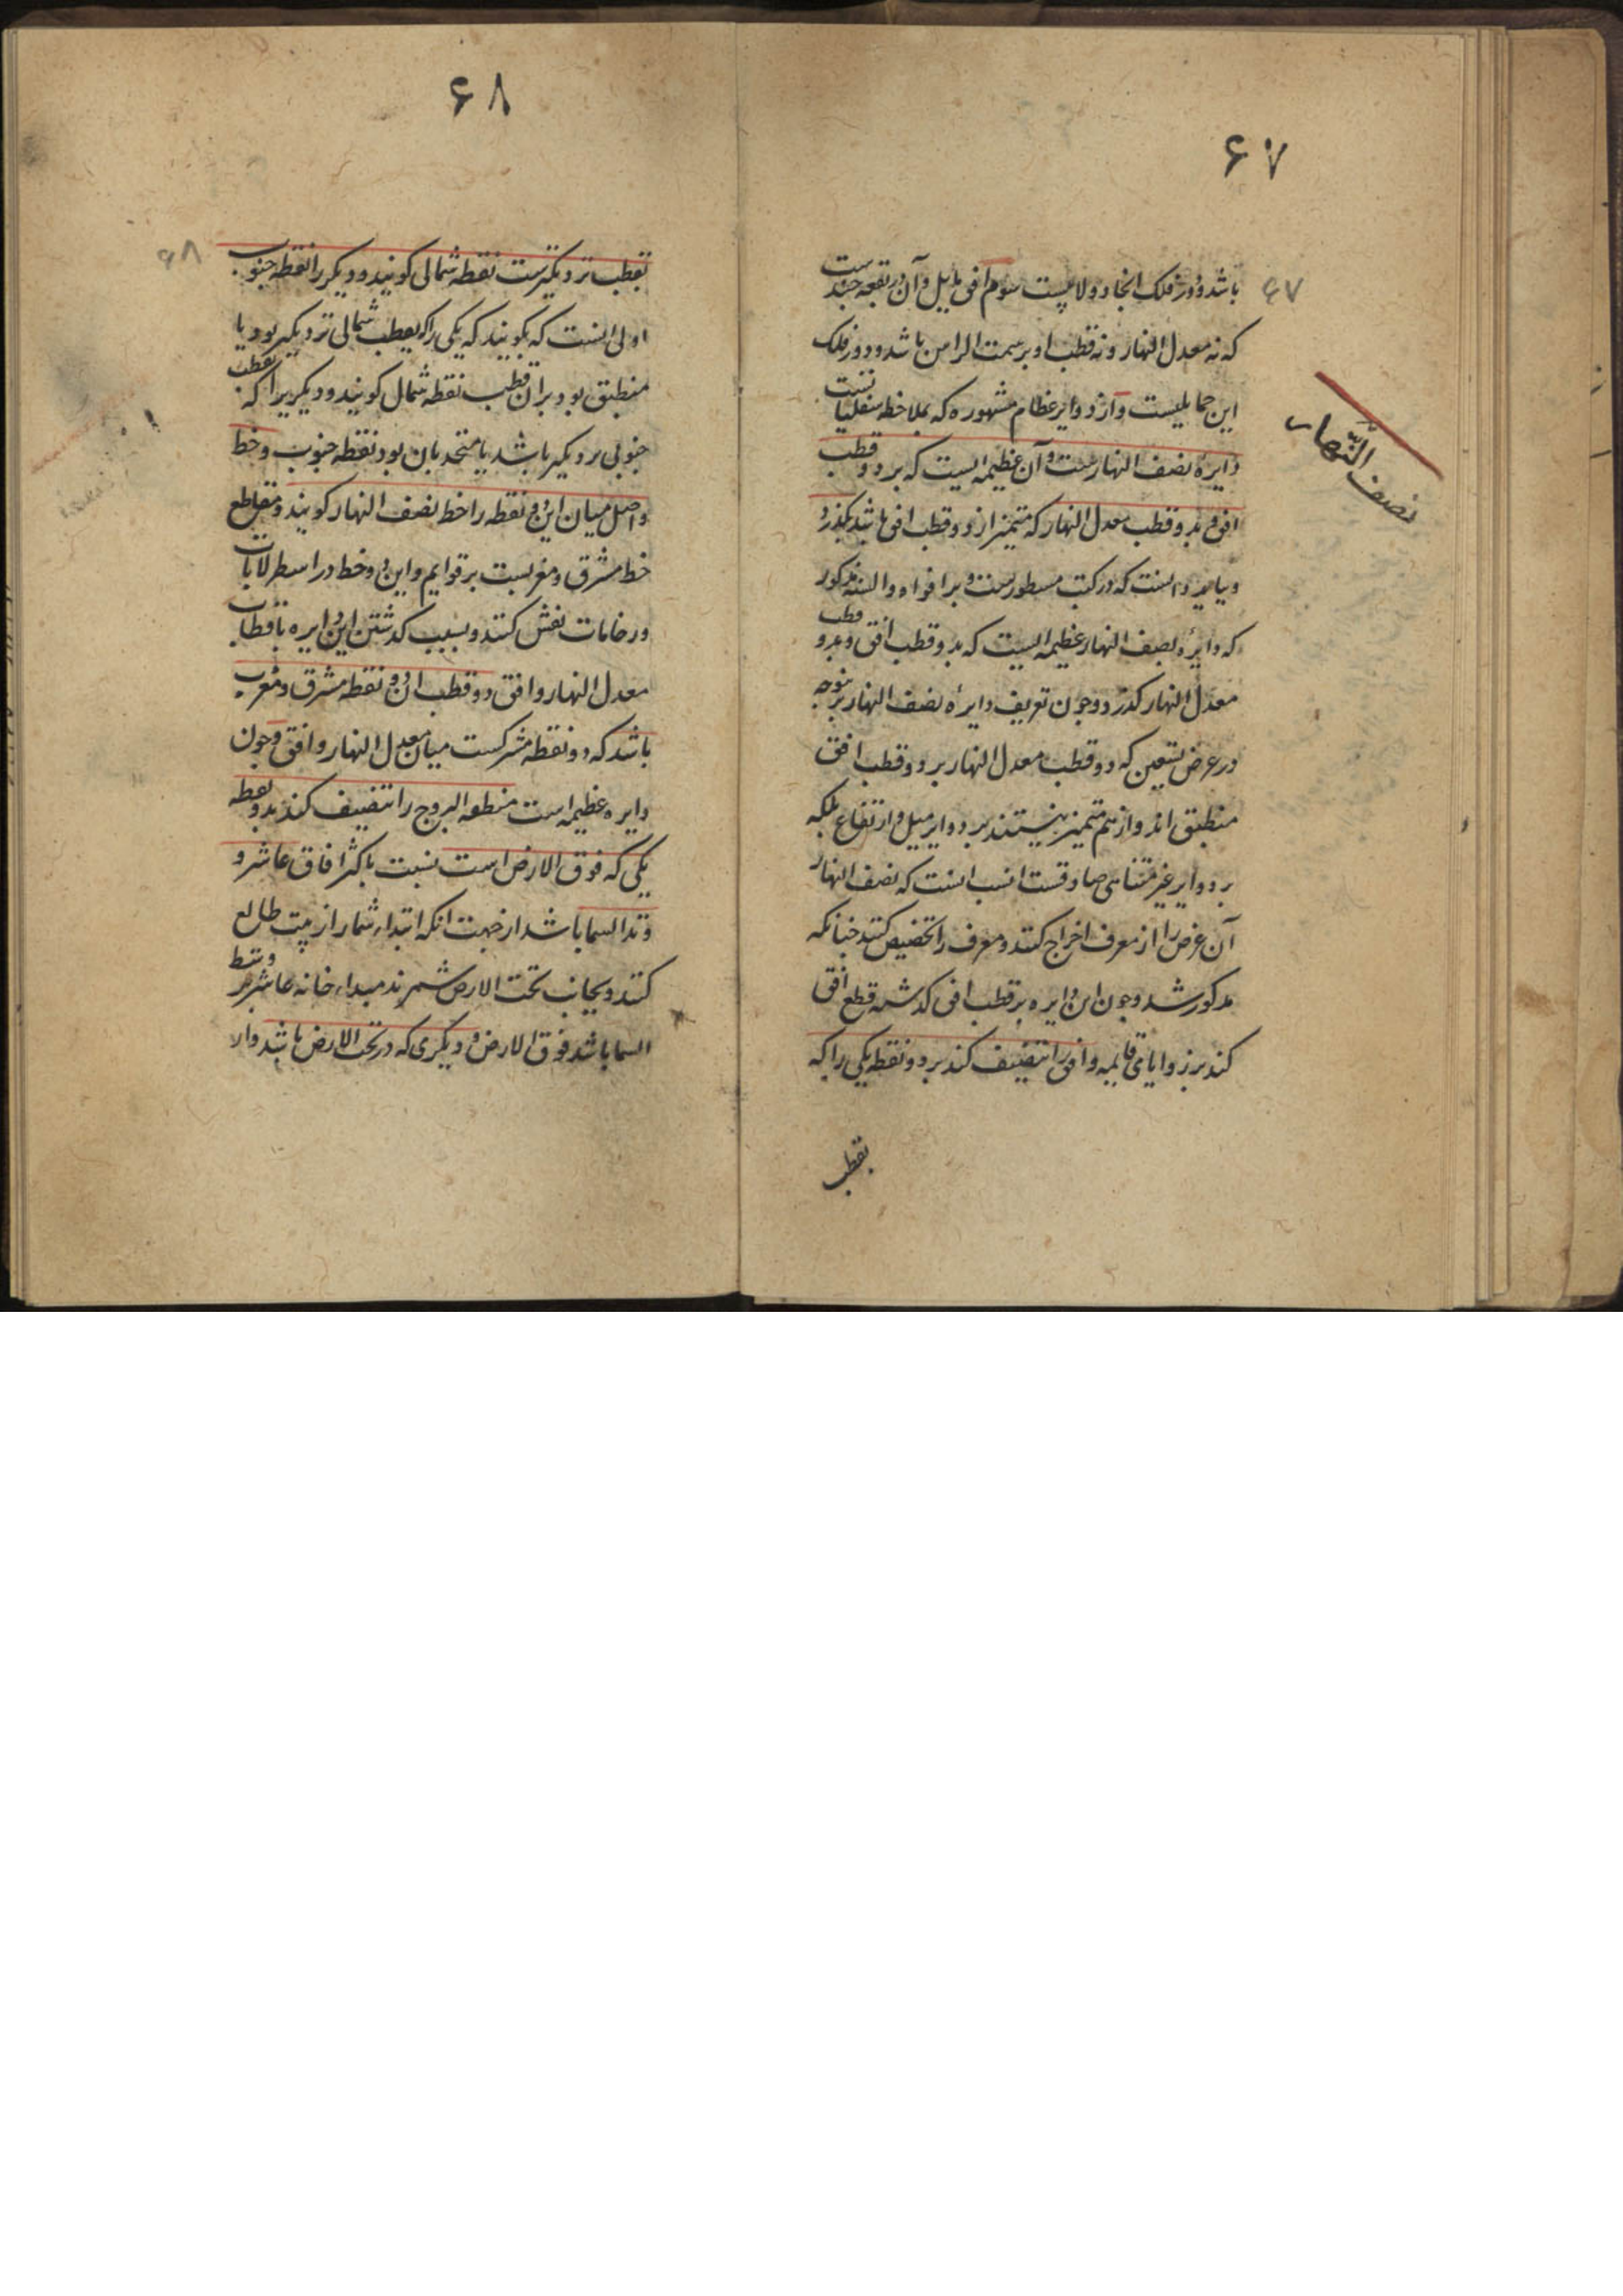 ۶۷
۶۷
باشد و دور فلک انجا دولابیست سوم افق مایل و آن در بقعه چندست
که نه معدل النهار و نه قطب او بر سمت الراس باشد و دور فلک
این حمایلیست و از دوایر عظام مشهوره که بملاحظه سفلیات است
دایرهٔ نصف النهارست و آن عظیمه ایست که بر دو قطب
افق و بدو قطب معدل النهار که متمیز از دو قطب افق باشد بگذرد
و بباید دانست که در کتب مسطورست و بر افواه و السنه مذکور
که دایرهٔ نصف النهار عظیمه ایست که بدو قطب افق و بدو قطب
معدل النهار گذرد و چون تعریف دایرهٔ نصف النهار برینوجه
در عرض تسعین که دو قطب معدل النهار بر دو قطب افق
منطبق اند و از هم متمیز نیستند بر دوایر میل و ارتفاع بلکه
بر دوایر غیر متناهی صادقست انسب انست که نصف النهار
آن عرض را از معرف اخراج کنند و معرف را تخصیص کنند چنانکه
مذکور شد و چون این دایره بر قطب افق گذشته قطع افق
کند بر زوایای قایمه و افق را تنصیف کند بر دو نقطه یکی را که
بقطب
نصف النّهار
۶۸
۶۸
بقطب نزدیکترست نقطه شمالی کویند و دیکر را نقطه جنوب
اولی انست که بکویند که یکی را که بقطب شمالی نزدیکتر بود یا
منطبق بود بران قطب نقطه شمال کویند و دیکریرا که بقطب
جنوبی نزدیکتر باشد یا متحد بان بود نقطه جنوب و خط
واصل میان این دو نقطه را خط نصف النهار کویند و مقاطع
خط مشرق و مغربست بر قوایم و این دو خط در اسطرلابات
و رخامات نقش کنند و بسبب گذشتن این دایره باقطاب
معدل النهار و افق دو قطب ان دو نقطه مشرق و مغرب
باشد که دو نقطه مشترکست میان معدل النهار و افق و چون
دایره عظیمه است منطقه البروج را تنصیف کند بدو نقطه
یکی که فوق الارض است نسبت باکثر افاق عاشر و
وتد السما باشد از جهت انکه ابتداء شمار از بیت طالع
کنند و بجانب تحت الارض شمرند مبداء خانه عاشر بر وسط
السما باشد فوق الارض و دیکری که در تحت الارض باشد وار